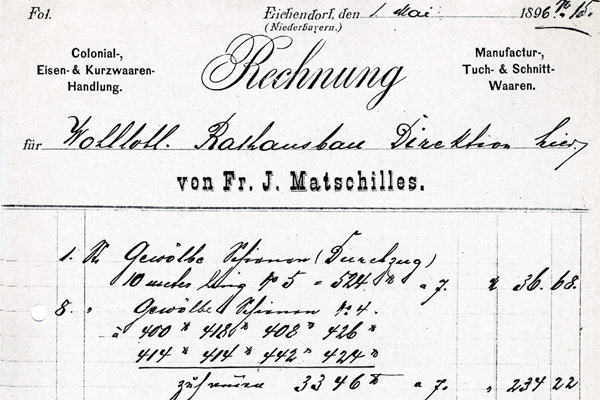 Fol. Eichendorf, den 1. Mai 1896 No 15.
(Niederbayern.)
Colonial-,
Eisen- & Kurzwaaren-
Handlung.
Rechnung
Manufactur-,
Tuch- & Schnitt-
Waaren.
für Wohllobl. Rathausbau Direktion hier
von Fr. J. Matschilles.
1. St Gewölbe Schienen (Durchzug)
10 meter lang No 5 = 524 a 7. 36.68.
8. " Gewölbe Schienen No 4.
à 400 418 408 426
414 414 442 424
zusammen 3346 a 7. " 234 22